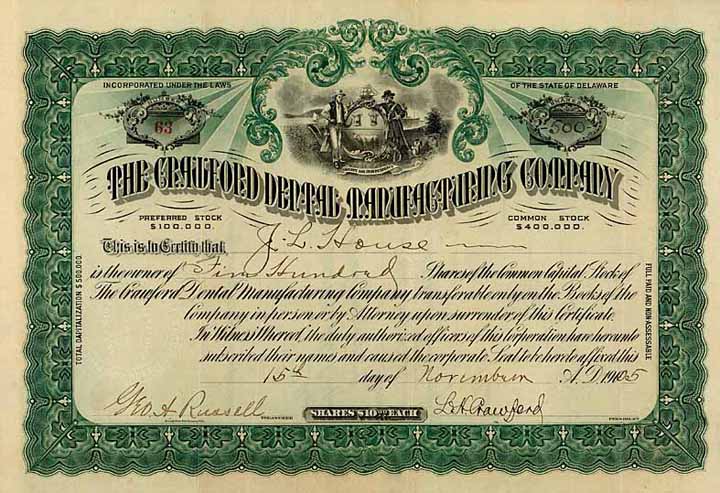 INCORPORATED UNDER THE LAWS OF THE STATE OF DELAWARE
63 500
THE CRAWFORD DENTAL MANUFACTURING COMPANY
PREFERRED STOCK COMMON STOCK
$100.000. $400.000.
This is to Certify that J. L. House
is the owner of Five Hundred Shares of the Common Capital Stock of
The Crawford Dental Manufacturing Company transferable only on the Books of the
Company in person or by Attorney upon surrender of this Certificate.
In Witness Whereof, the duly authorized officers of this Corporation have hereunto
subscribed their names and caused the corporate Seal to be hereto affixed this
15th day of November A.D. 1905
Geo. A. Russell L A Crawford
TREASURER SHARES $10.00 EACH PRESIDENT
TOTAL CAPITALIZATION $500,000.
FULL PAID AND NON-ASSESSABLE